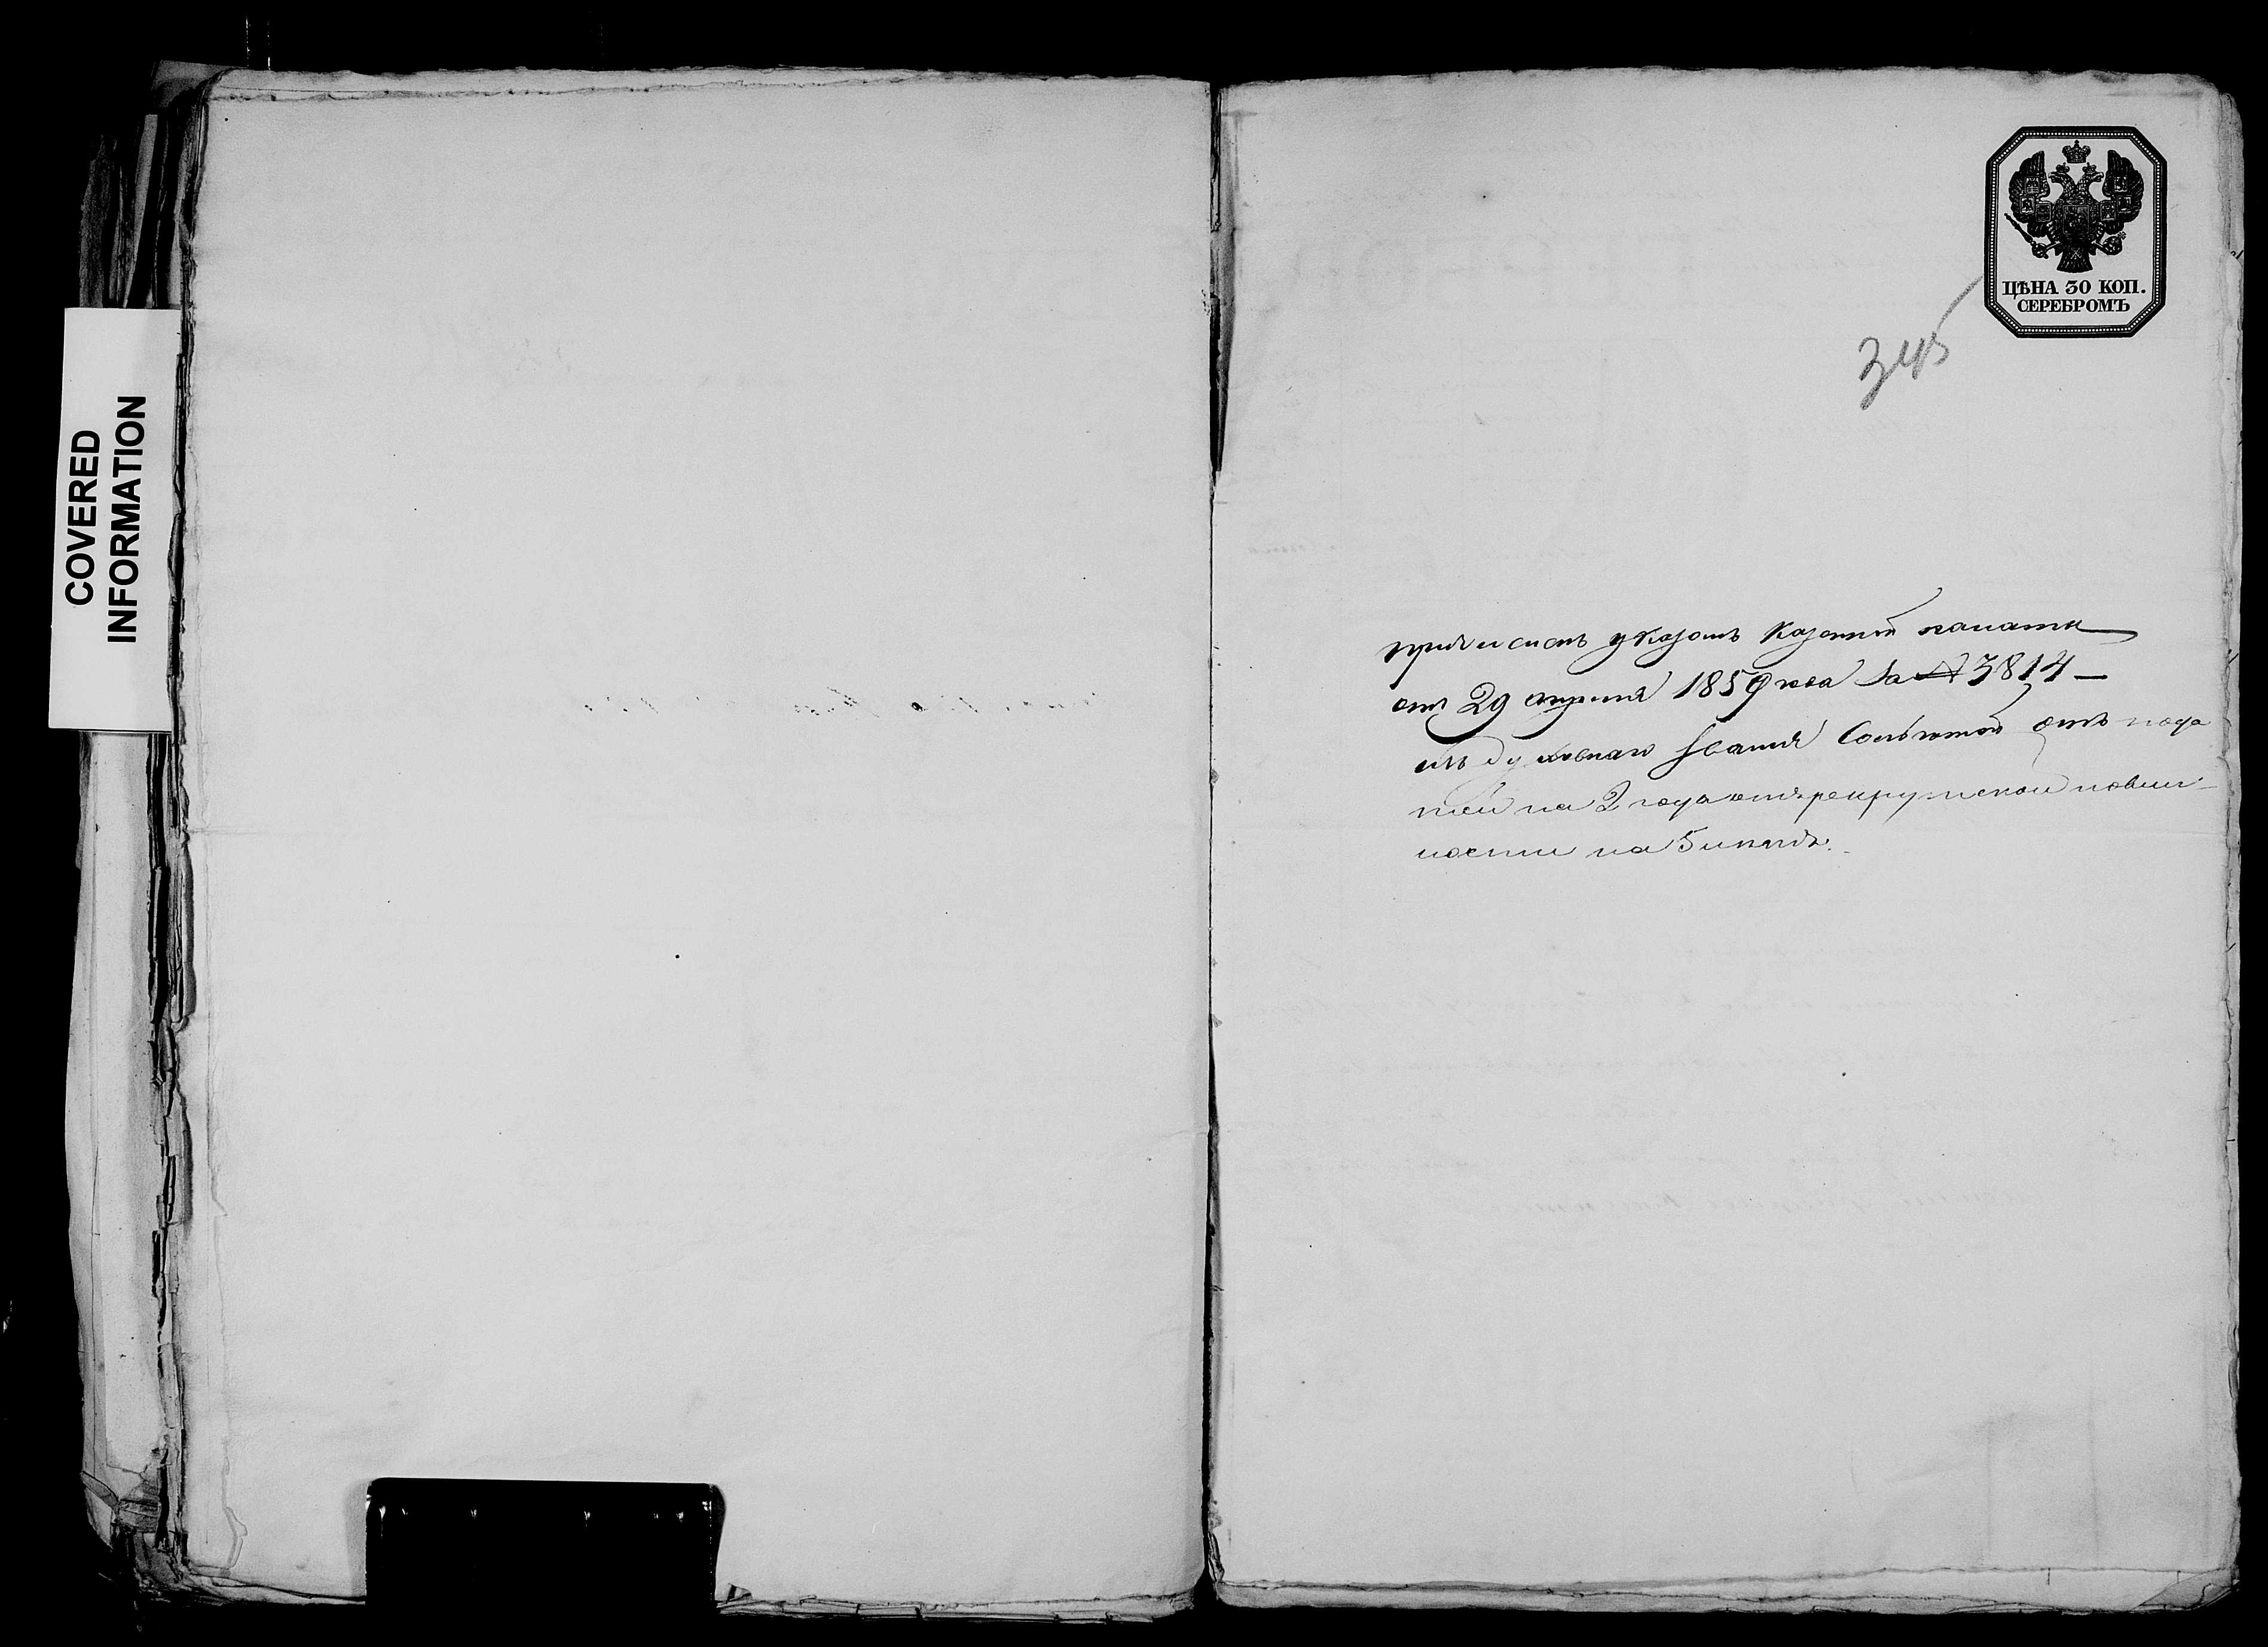 COVERED
INFORMATION
ЦѢНА 30 КОП.
СЕРЕБРОМЪ
345
причисленъ указомъ Казенной палаты
отъ 29 апрѣля 1859 года за № 3814 —
изъ духовнаго званія Сольготой отъ пода
тей на 2 года отъ рекрутской повин-
ности на 5 летъ.